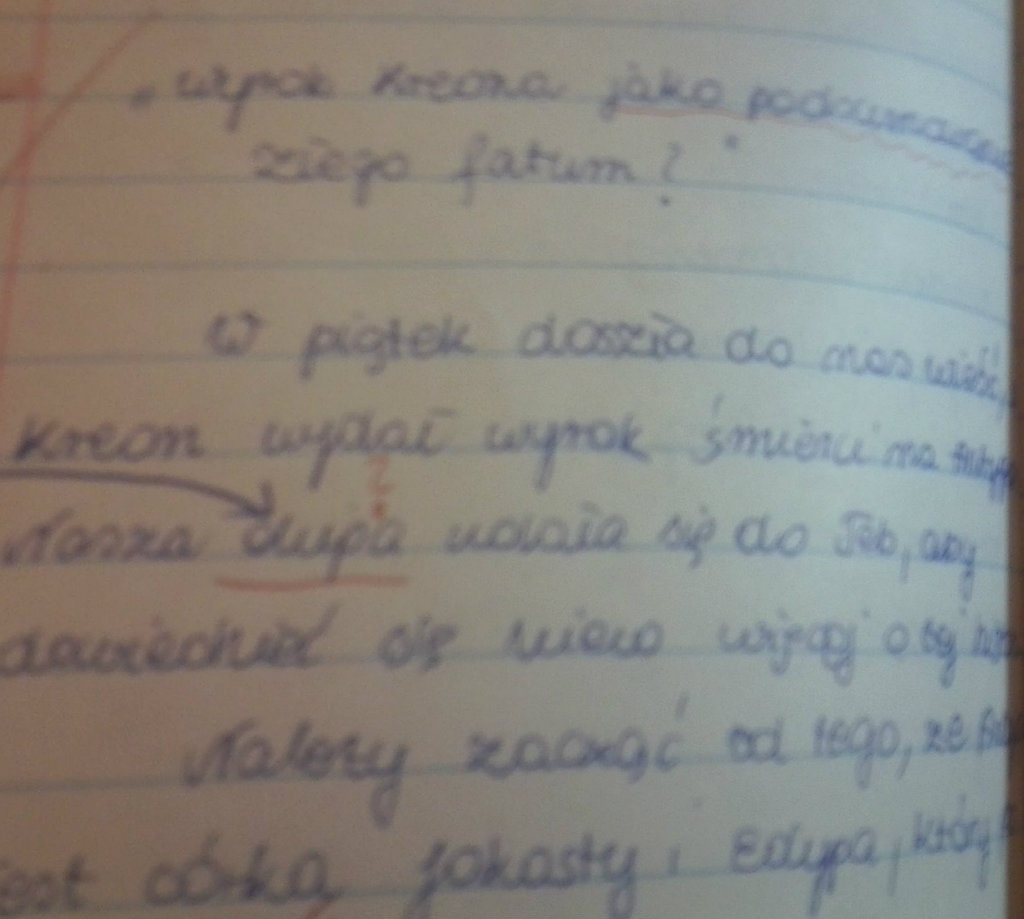 „Wyrok Kreona jako podsumowanie
złego fatum?"
W piątek doszła do nas wieść,
Kreon wydał wyrok śmierci na
Nasza ekipa udała się do Teb, aby
dowiedzieć się nieco więcej o tej
Należy zacząć od tego, że
jest córką Jokasty i Edypa, który